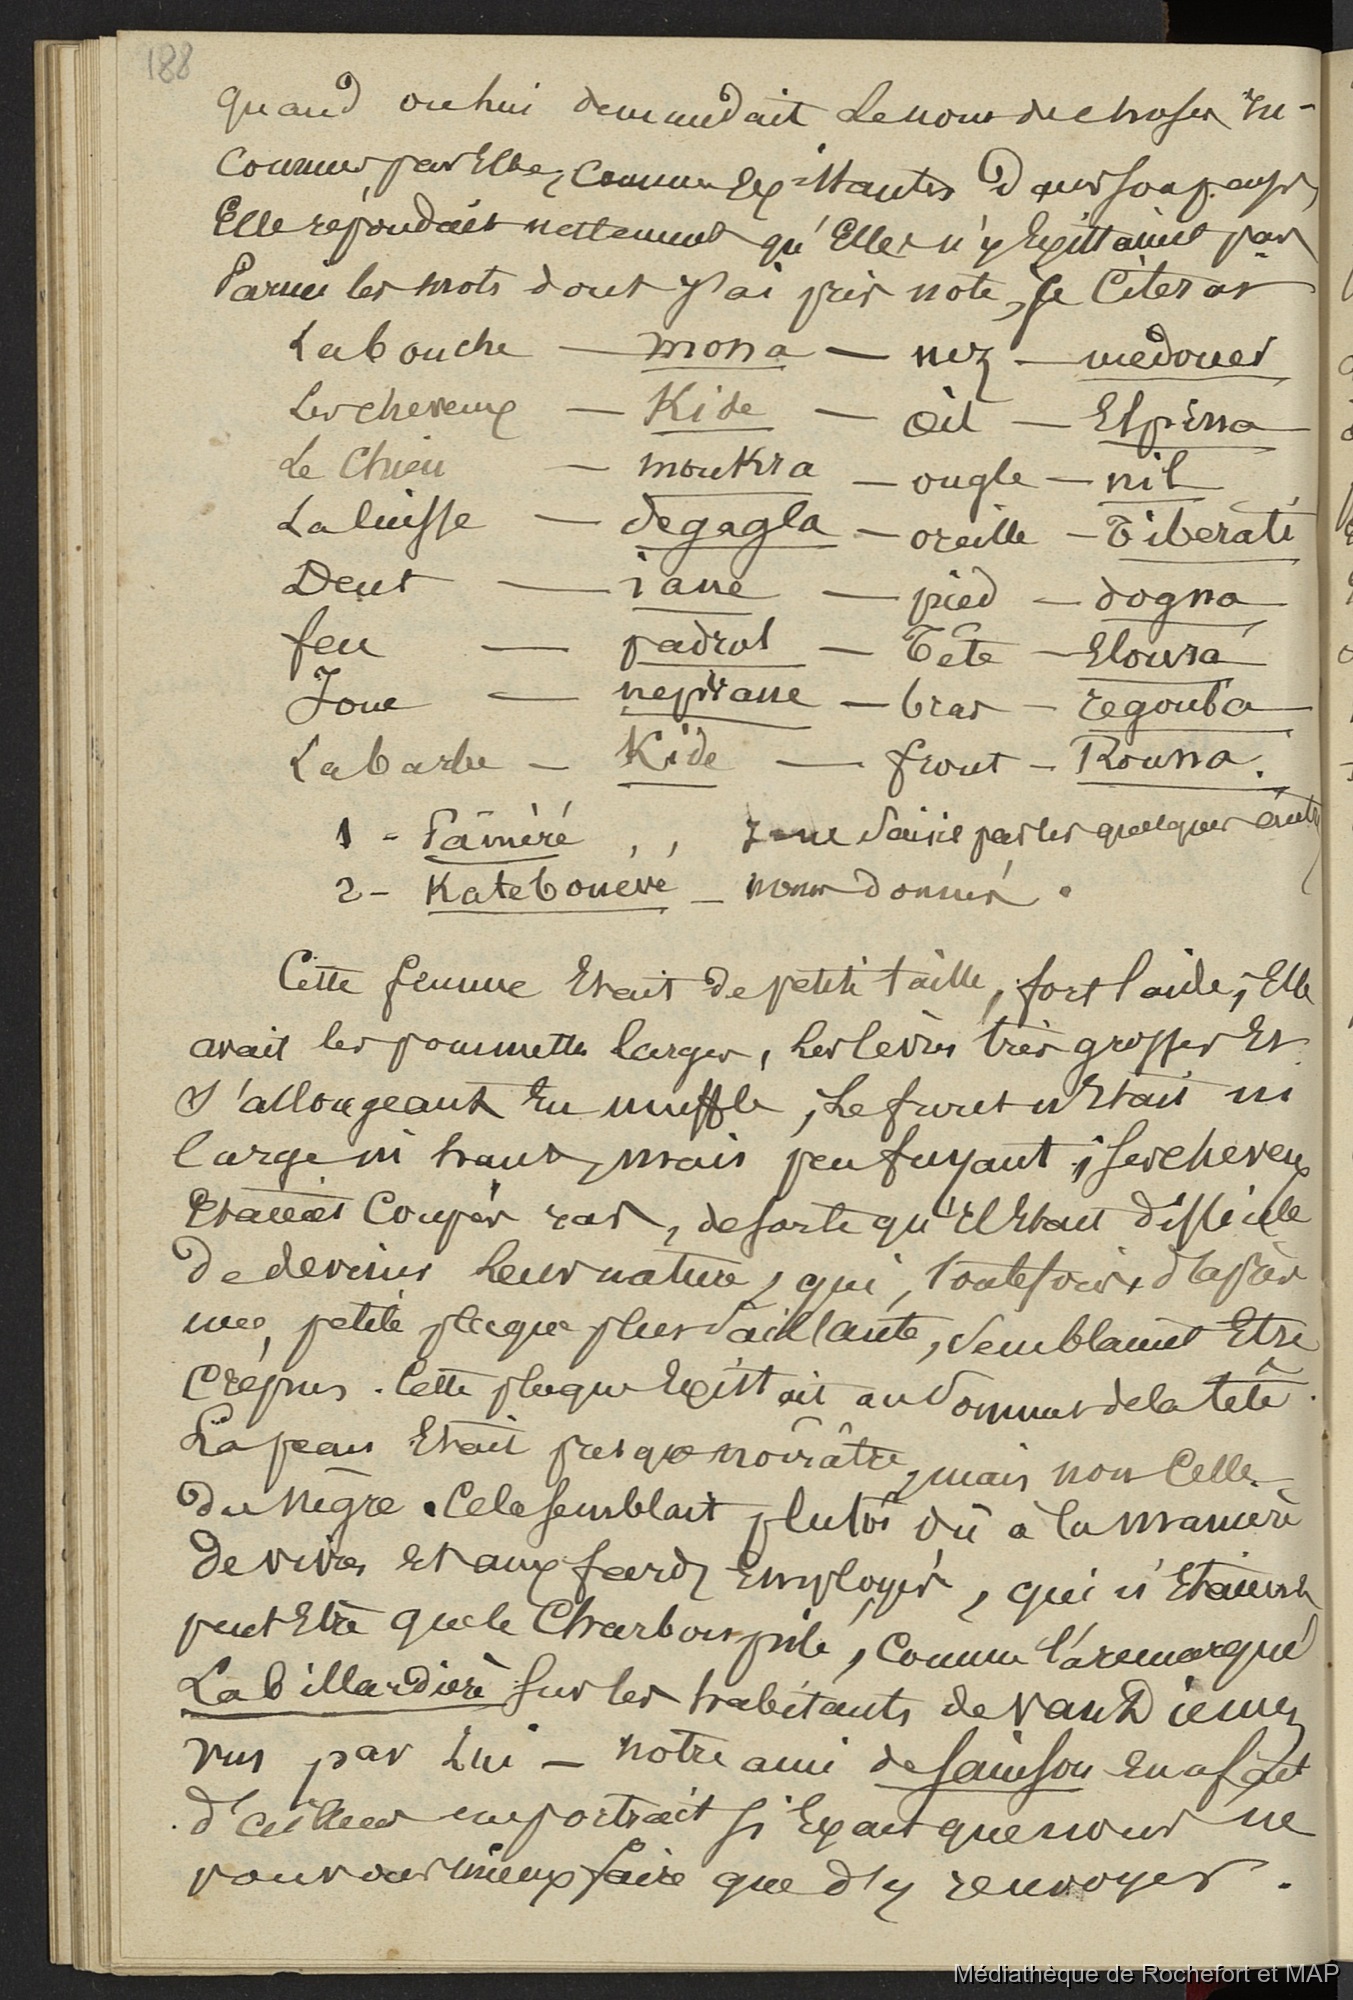 188
quand on lui demandait le nom de choses in-
connues par Elle, comme Existantes dans son pays,
Elle répondait nettement qu'Elles n'y Existaient pas
Parmi les mots dont j'ai pris note, je Citerai
La bouche — mona — nez — medouer
Les cheveux — Kide — Oeil — Elpina
Le Chien — moukra — ougle — nil
La cuisse — degagla — oreille — Tiberati
Dent — iane — pied — dogna
feu — padrol — Tête — Eloura
Joue — nepirane — bras — regouba
La barbe — Kide — front — Rouna.
1 - Pâméré , , je ne saisis pas les quelques autres
2 - Katebouévé — noms donnés.
Cette femme Etait de petite taille, fort laide, Elle
avait les pommettes larges, les lèvres très grosses Et
s'allongeant En muffle, le front n'Etait ni
large ni haut, mais peu fuyant; ses cheveux
Etaient Coupés ras, de sorte qu'il Etait difficile
De deviner leur nature, qui, toutefois, d'après
une petite plaque plus saillante, semblaient Etre
Crépus. Cette plaque Existait au sommet de la tête.
La peau Etait presque noirâtre, mais non Celle
du nègre. Cela semblait plutôt dû à la manière
De vivre et aux fards Employés, qui n'Etaient
peut Etre que le Charbon pilé, Comme l'a remarqué
Labillardière sur les habitants de van Diemen
vus par Lui — notre ami de Sainson En a fait
d'ailleurs un portrait si Exact que nous ne
pouvons mieux faire que d'y renvoyer.
Médiathèque de Rochefort et MAP